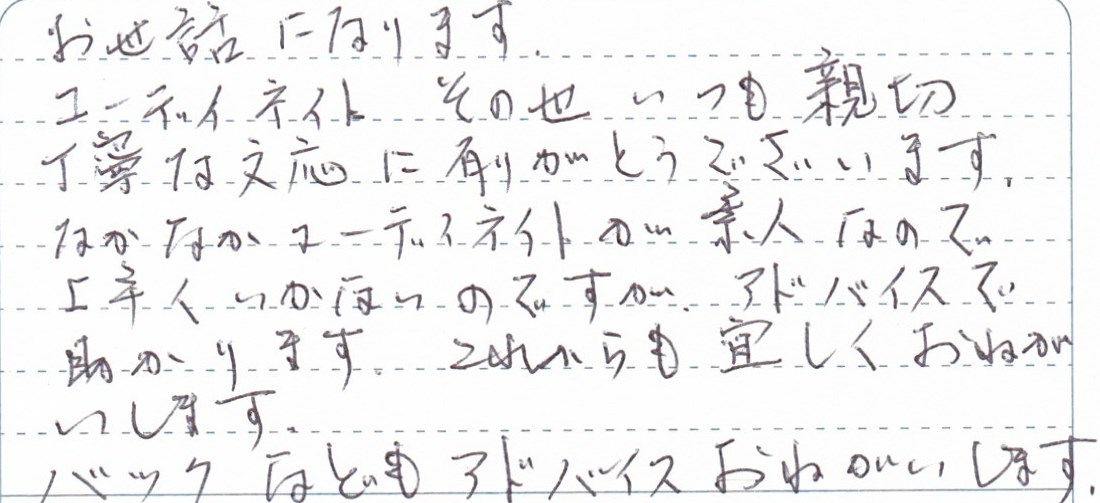 お世話になります.
コーディネイト その他 いつも 親切
丁寧な文応に有りがとうございます.
なかなかコーディネイトが素人なので
上手くいかないのですが、アドバイスで
助かります. これからも宜しくおねが
いします.
バックなどもアドバイスおねがいします.